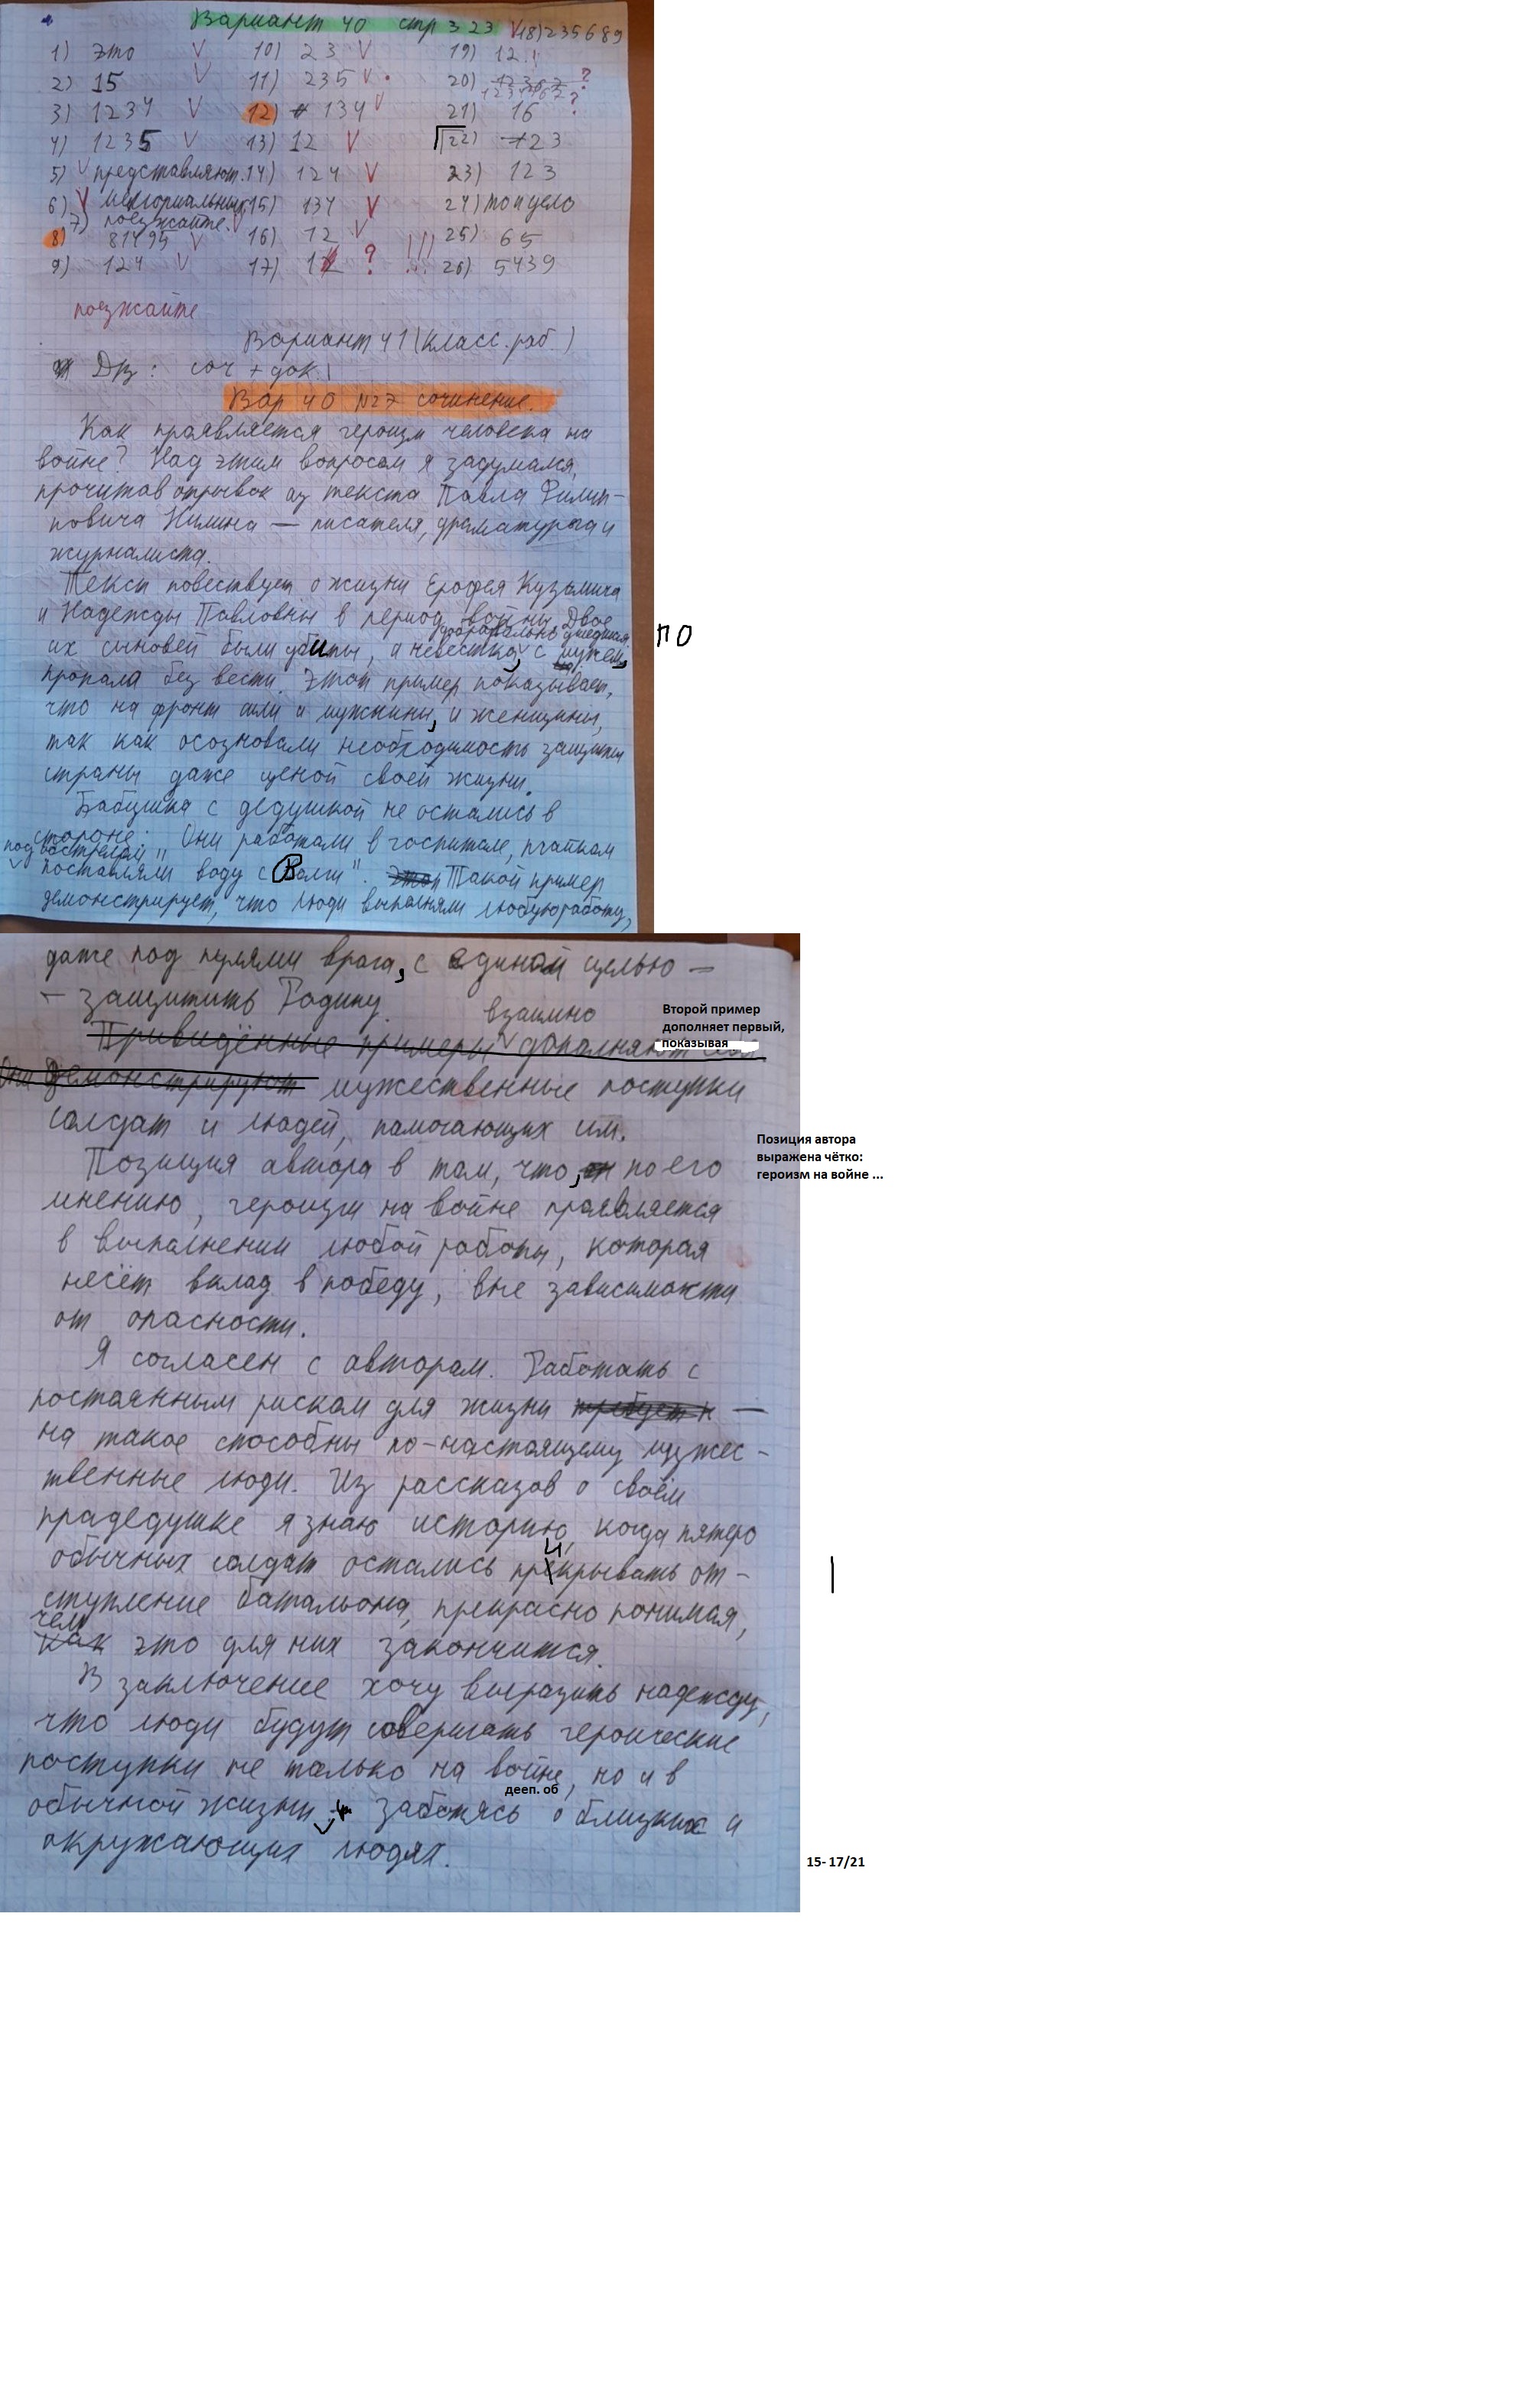 Вариант 40 стр 323 V 18) 235689
1) это V 10) 23 V 19) 12 !
2) 15 V 11) 235 V . 20) ?
3) 1234 V 12) 134 V 21) 16 ?
4) 1235 V 13) 12 V 22) 123
5) V представляют. 14) 124 V 23) 123
6) V мемориальных 15) 134 V 24) то и дело
7) поезжайте. V
8) 81495 V 16) 12 V !!! 25) 65
9) 124 V 17) 12 ? 26) 5439
поезжайте
Вариант 41 (класс. раб.)
Дз: соч + док.
Вар 40 №27 сочинение.
Как проявляется героизм человека на
войне? Над этим вопросом я задумался,
прочитав отрывок из текста Павла Филип-
повича Нилина — писателя, драматурга и
журналиста.
Текст повествует о жизни Ерофея Кузьмича
и Надежды Павловны в период войны. Двое
добровольно ушедшая
их сыновей были убиты, а невестка, с мужем,
ПО
пропала без вести. Этот пример показывает,
что на фронт шли и мужчины, и женщины,
так как осозновали необходимость защиты
страны даже ценой своей жизни.
Бабушка с дедушкой не остались в
стороне: "Они работали в госпитале,
под обстрелом
поставляли воду с Волги". Этот Такой пример
демонстрирует, что люди выполняли любую работу,
даже под пулями врага, с единой целью —
— защитить Родину.
взаимно
Второй пример
дополняет первый,
показывая
Привидённые примеры дополняют себя.
Они демонстрируют мужественные поступки
солдат и людей, помогающих им.
Позиция автора
выражена чётко:
героизм на войне ...
Позиция автора в том, что, по его
мнению, героизм на войне проявляется
в выполнении любой работы, которая
несёт вклад в победу, вне зависимости
от опасности.
Я согласен с автором. Работать с
постоянным риском для жизни требует —
на такое способны по-настоящему мужес-
твенные люди. Из рассказов о своём
прадедушке я знаю историю, когда пятеро
и
обычных солдат остались прекрывать от-
ступление батальона, прекрасно понимая,
чем
как это для них закончится.
В заключение хочу выразить надежду,
что люди будут совершать героические
поступки не только на войне, но и в
дееп. об
обычной жизни, заботясь о близких и
окружающих людях.
15- 17/21